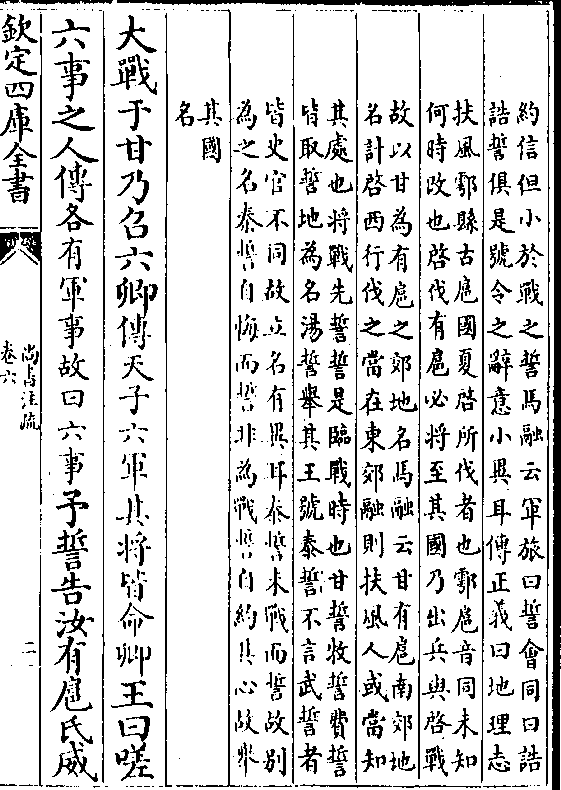 約信但小於戰之誓馬融云軍旅曰誓會同曰誥
誥誓俱是號令之辭意小異耳傳正義曰地理志
扶風鄠縣古扈國夏啓所伐者也鄠扈音同未知
何時改也啓伐有扈必將至其國乃出兵與啓戰
故以甘為有扈之郊地名馬融云甘有扈南郊地
名計啓西行伐之當在東郊融則扶風人或當知
其處也將戰先誓誓是臨戰時也甘誓牧誓費誓
皆取誓地為名湯誓舉其王號泰誓不言武誓者
皆史官不同故立名有異耳泰誓未戰而誓故別
為之名秦誓自悔而誓非為戰誓自約其心故舉
其國
名
大戰于甘乃召六卿傳天子六軍其將皆命卿王曰嗟
六事之人傳各有軍事故曰六事予誓告汝有扈氏威
欽定四庫全書
尚書注疏
卷六
二